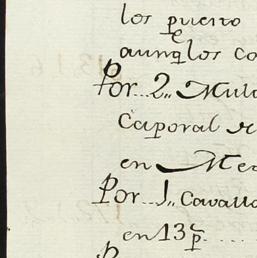 los puerto
aunq̃ los co
Por...2,, Mula
Caporal
en Me
Por...1,, Cavallo
en 13 p̃....